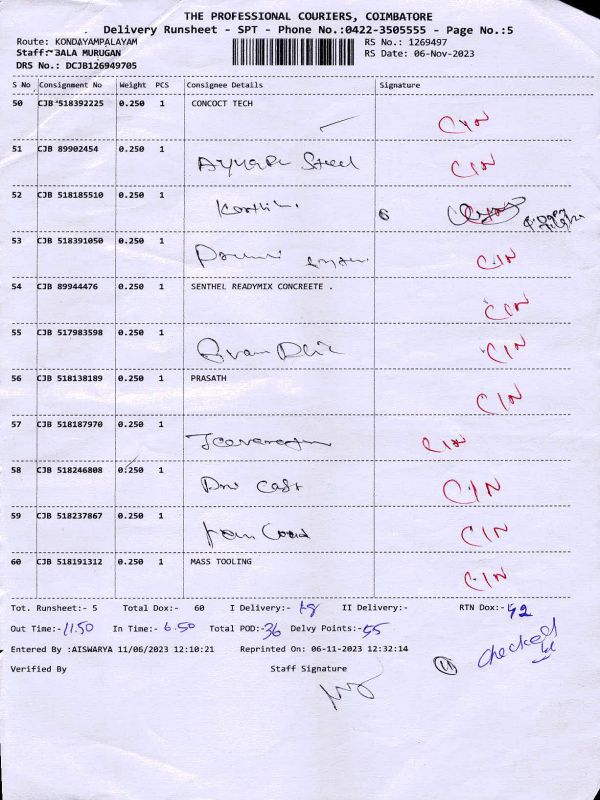 THE PROFESSIONAL COURIERS, COIMBATORE
Delivery Runsheet - SPT - Phone No.:0422-3505555 - Page No.:5
Route: KONDAYAMPALAYAM RS No.: 1269497
Staff: BALA MURUGAN RS Date: 06-Nov-2023
DRS No.: DCJB126949705
S No Consignment No Weight PCS Consignee Details Signature
50 CJB 518392225 0.250 1 CONCOCT TECH CIN
51 CJB 89902454 0.250 1 Steel CIN
52 CJB 518185510 0.250 1
53 CJB 518391050 0.250 1 CIN
54 CJB 89944476 0.250 1 SENTHEL READYMIX CONCREETE . CIN
55 CJB 517983598 0.250 1 CIN
56 CJB 518138189 0.250 1 PRASATH CIN
57 CJB 518187970 0.250 1 CIN
58 CJB 518246808 0.250 1 Cast CIN
59 CJB 518237867 0.250 1 CIN
60 CJB 518191312 0.250 1 MASS TOOLING CIN
Tot. Runsheet:- 5 Total Dox:- 60 I Delivery:- 18 II Delivery:- RTN Dox:- 42
Out Time:- 11.50 In Time:- 6.50 Total POD:- 36 Delvy Points:- 55
Entered By :AISWARYA 11/06/2023 12:10:21 Reprinted On: 06-11-2023 12:32:14 checked
Verified By Staff Signature